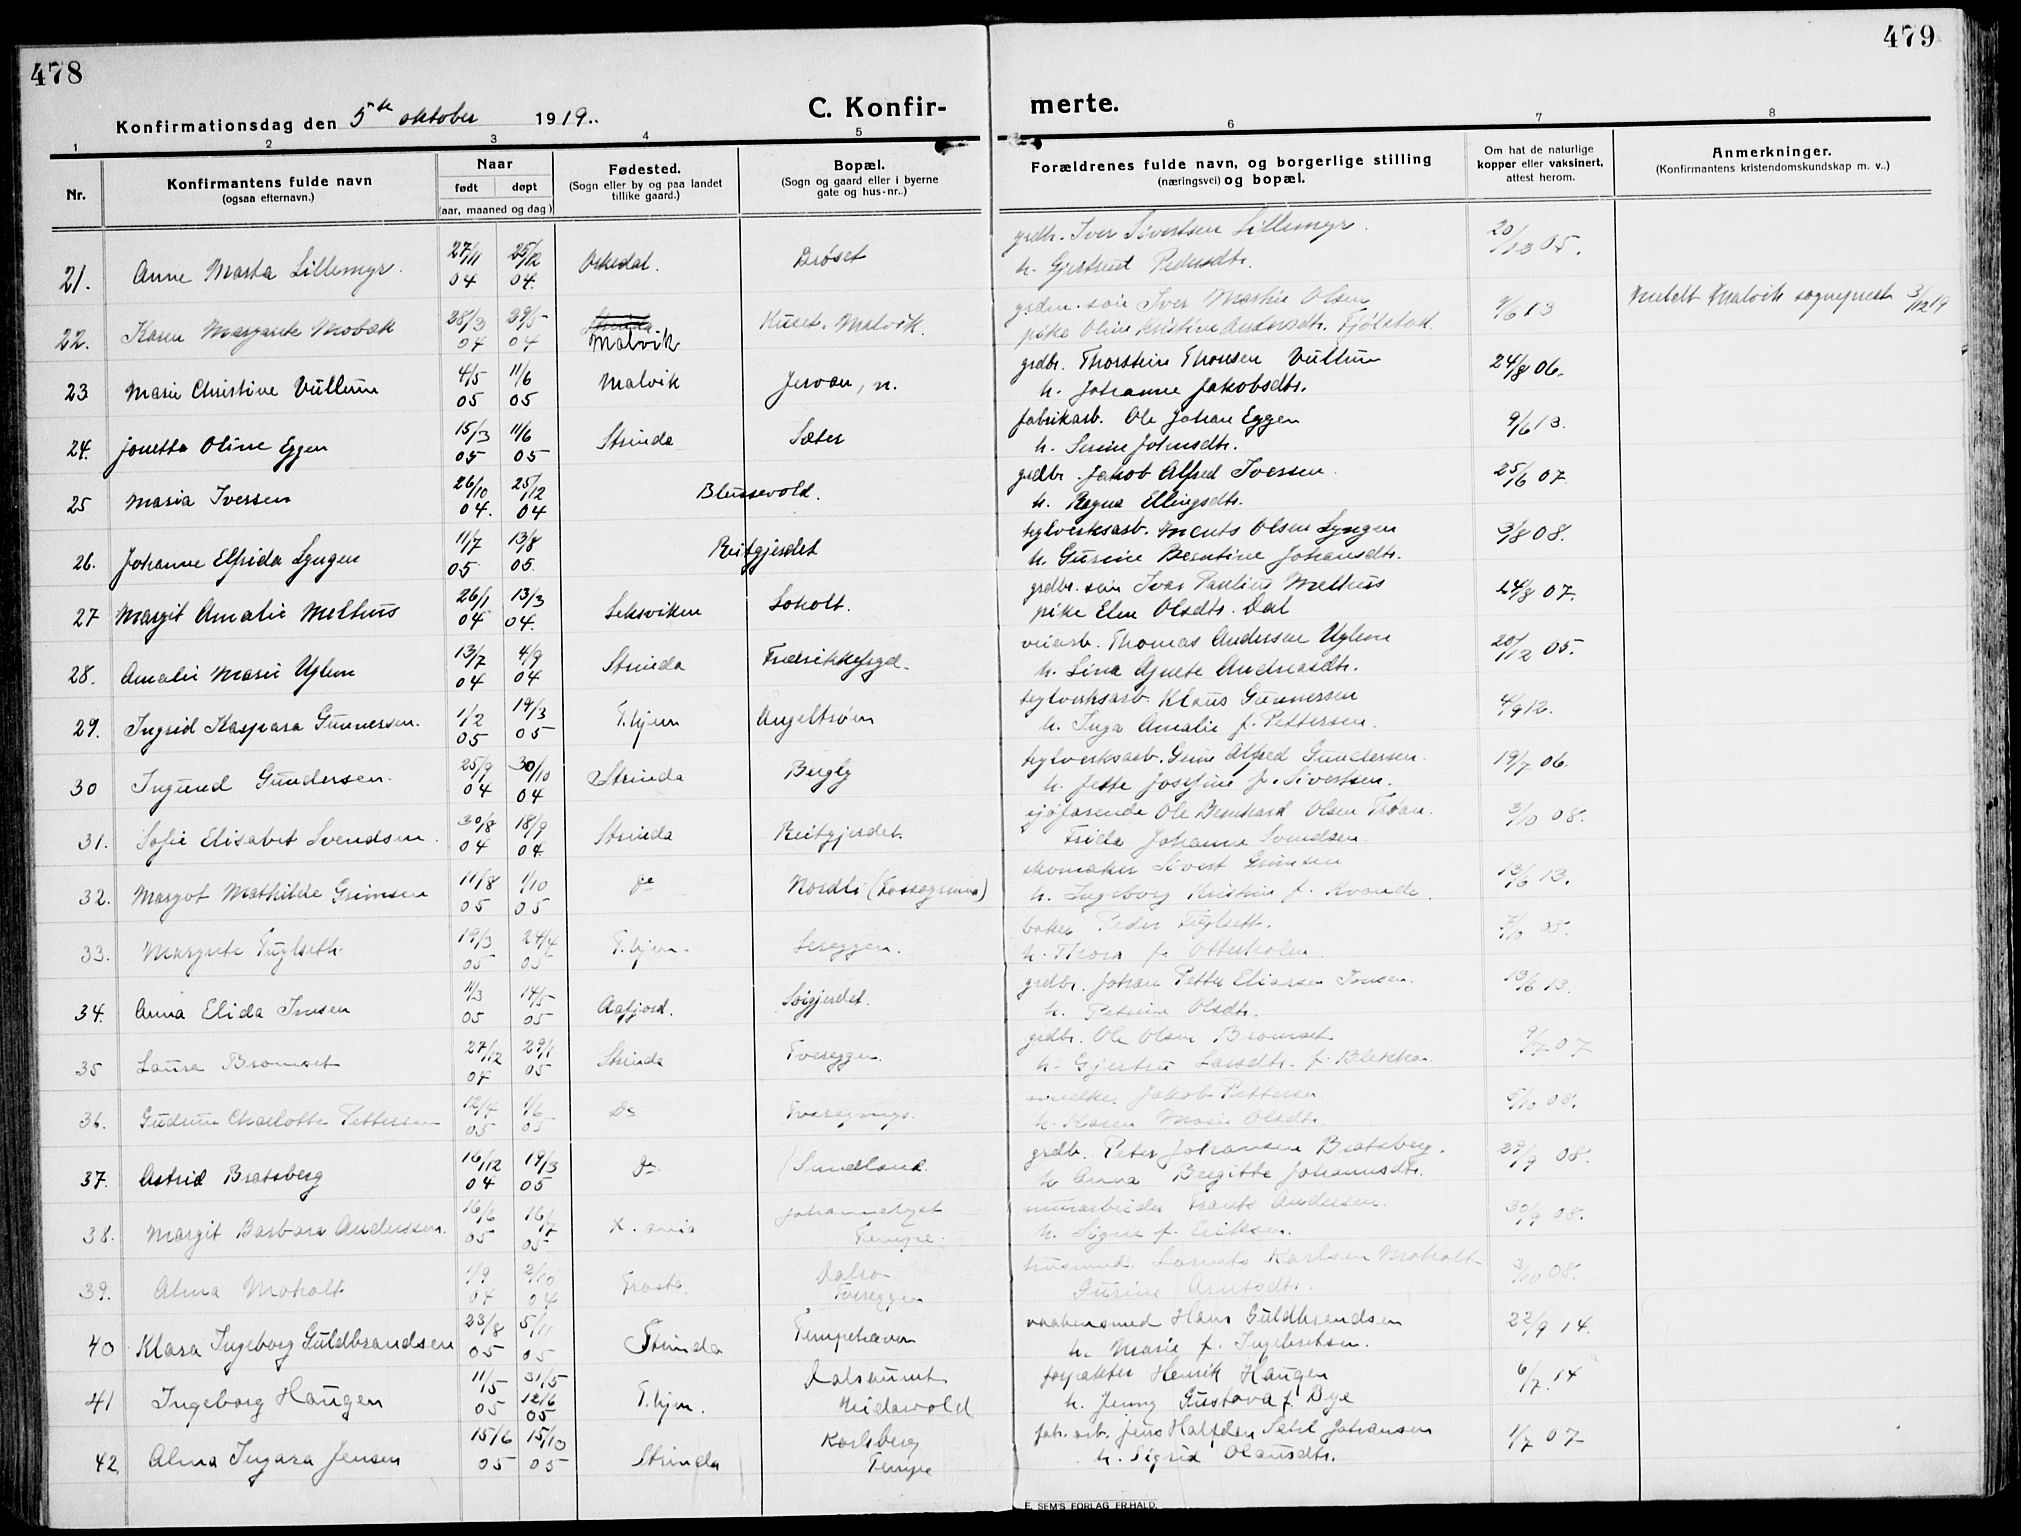 478
479
Konfirmationsdag den 5te oktober 1919.
C. Konfir-
merte.
1 2 3 4 5 6 7 8
Nr.
Konfirmantens fulde navn
(ogsaa efternavn.)
Naar
født døpt
(aar, maaned og dag)
Fødested.
(Sogn eller by og paa landet
tillike gaard.)
Bopæl.
(Sogn og gaard eller i byerne
gate og hus-nr.)
Forældrenes fulde navn, og borgerlige stilling
(næringsvei) og bopæl.
Om hat de naturlige
kopper eller vaksinert,
attest herom.
Anmerkninger.
(Konfirmantens kristendomskundskap m. v.)
grdbr. Iver Sivertsen Lillemyr.
21. Anne Marta Lillemyr. 27/11 04 25/12 04. Orkedal. Brøset
h. Gjertrud Pedersdtr. 20/12 05.
grdbr. søn Iver Martin Olsen
22. Karen Margrete Mobæk 28/3 04 29/5 04 Malvik Malvik.
pike Oline Kristine Andersdtr. Fjølstad. 9/6 13 Meldt Malvik sogneprest 3/12 19
grdbr. Thorstein Thomsen Vullum
23 Marie Christine Vullum 4/5 05 11/6 05 Malvik Jervan, n.
h. Johanne Jakobsdtr. 24/8 06.
fabrikarb. Ole Johan Eggen
24. Jonetta Oline Eggen 15/3 05 11/6 05 Strinda Sæter
h. Serine Johnsdtr. 9/6 13.
grdbr. Jakob Alfred Iversen.
25 Maria Iversen 26/10 04. 25/12 04 Blussevold.
h. Ragna Ellingsdtr. 25/6 07.
teglverksarb. Ments Olsen Lyngen
26. Johanne Elfrida Lyngen 11/7 05 13/8 05. Reitgjerdet
h. Gurine Berntine Johansdtr. 3/8 08.
grdbr. søn Ivar Paulius Melhus
27 Margit Amalie Melhus 26/1 04 13/3 04. Leksviken Loholt.
pike Elen Olsdtr. Dal 24/8 07.
veiarb. Thomas Andersen Uglem
28. Amalie Marie Uglem 13/7 04 4/9 04 Strinda
h. Lina Agnete Andreasdtr. 20/12 05.
teglverksarb. Klaus Gunnersen
29. Ingrid Kaspara Gunnersen. 1/2 05 19/3 05 T.hjem Angeltrøen
h. Inga Amalie f. Pettersen. 4/9 12.
teglverksarb. Alfred Gundersen.
30 Ingund Gundersen. 25/9 04 30/10 04 Strinda Bergly
h. Josefine f. Sivertsen. 19/7 06.
sjøfarende Ole Bernhard Olsen Trøan.
31. Sofie Elisabet Svendsen. 30/8 04 18/9 04. Strinda Reitgjerdet.
Frida Johanne Svendsen. 3/10 08.
skomaker Sivert Grimsen
32. Margot Mathilde Grimsen 11/8 05 1/10 05 do Nordli (Fossegrenna)
h. Ingeborg Kristine f. Kvande. 13/6 13.
baker Peder Fuglseth.
33. Margrete Fuglseth. 19/3 05 24/4 05 T.hjem. Tereggen.
h. Thora f. Otterholm 7/10 05.
grdbr. Johan Petter Eliassen Imsen.
34. Anna Elida Imsen 11/3 05 14/5 05 Aafjord. Søigjerdet.
h. Petrine Olsdtr. 13/6 13.
grdbr. Ole Olsen Bromset
35 Laura Bromset 27/12 04 29/1 05 Strinda Tvereggen.
h. Gjertru Larsdtr. f. Blekkan. 9/7 07
Jakob Pettersen
36. Gudrun Charlotte Pettersen 12/4 05 1/6 05 Do
h. Karen Marie Olsdtr. 5/10 08.
grdbr. Peter Johansen Bratsberg.
37. Astrid Bratsberg 16/12 04 19/3 05 do (Sundland.
h. Anna Bergitte Johannsdtr. 29/9 08.
murarbeider Frants Andersen.
38. Margit Barbara Anderssen. 16/6 05 16/7 05 X.ania Johanneslyst
Tempe.
h. Signe f. Eriksen. 30/9 08.
husmd. Lorents Karlsen Moholt
39. Alma Moholt 1/9 04 2/10 04 Frosta. Dalro
Tvereggen
Gurine Arntsdtr. 3/10 08.
vaabensmed Hans Guldbrandsen
40 Klara Ingeborg Guldbrandsen 23/8 05 5/11 05 Strinda Tempehaven
h. Marie f. Ingebretsen. 22/9 14.
forpakter Henrik Haugen
41 Ingeborg Haugen 11/5 05 31/5 12/6 05 T.hjem. Dalsaunet
Nidarvold
h. Jenny Gustava f. Bye 6/7 14
fab. arb. Jens Halfdan Johansen
42. Alma Ingara Jensen 15/6 05 15/10 05 Strinda Karlsberg
Tempe
h. Sigrid Olausdtr. 1/7 07
E. SEM'S FORLAG FR.HALD